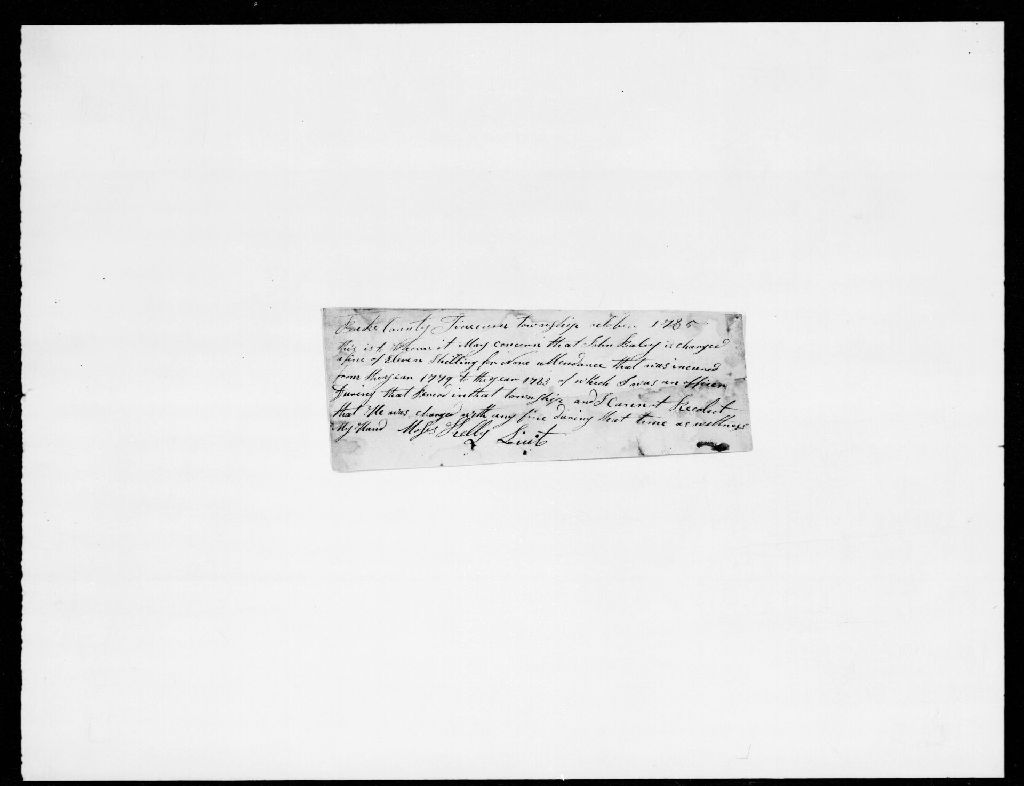 Bucks County Tinicum township october 1785
this is to whome it May concern that John Haley is charged
a fine of Eleven Shilling for None attendance that was incured
from the year 1779 to the year 1783 of which I was an officer
During that in that township and I Canent Recolect
that He was charged with any fine during that time as wittness
My Hand Moses Kelly Liut